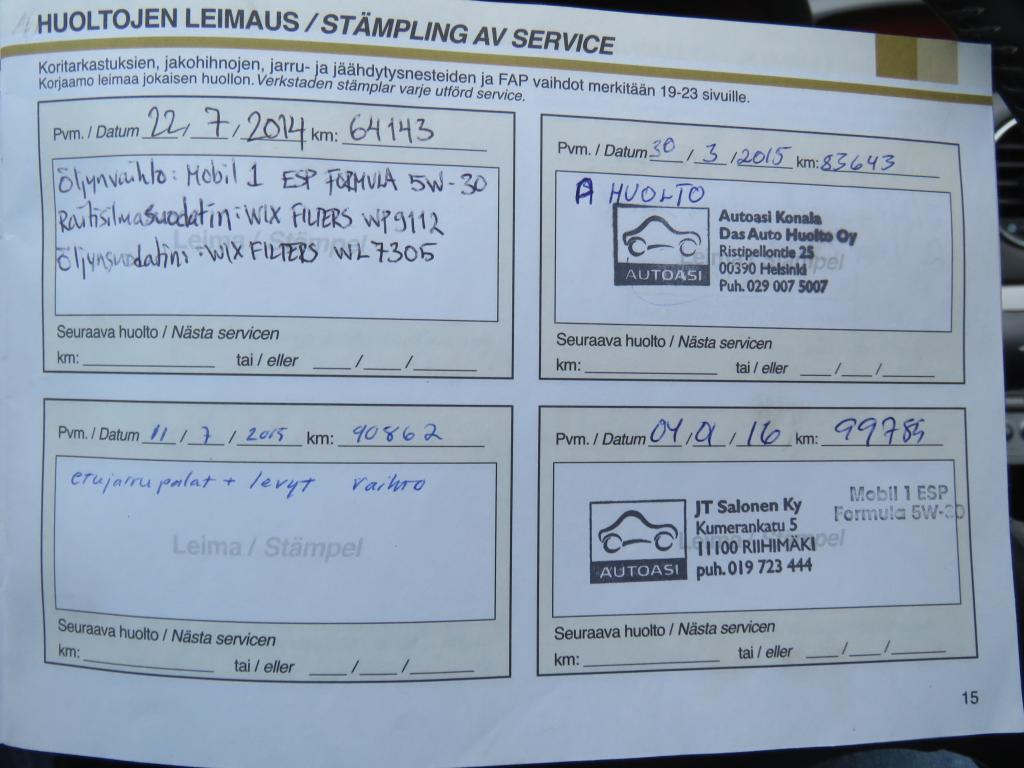 HUOLTOJEN LEIMAUS / STÄMPLING AV SERVICE
Koritarkastuksien, jakohihnojen, jarru- ja jäähdytysnesteiden ja FAP vaihdot merkitään 19-23 sivuille.
Korjaamo leimaa jokaisen huollon. Verkstaden stämplar varje utförd service.
Pvm. / Datum 22 / 7 / 2014 km: 64143
Öljynvaihto: Mobil 1 ESP FORMULA 5W-30
Raitisilmasuodatin: WIX FILTERS WP9112
Leima / Stämpel
Öljynsuodatin: WIX FILTERS WL7305
Seuraava huolto / Nästa servicen
km: tai / eller / /
Pvm. / Datum 30 / 3 / 2015 km: 83643
A HUOLTO
AUTOASI
Autoasi Konala
Das Auto Huolto Oy
Ristipellontie 25
Leima / Stämpel
00390 Helsinki
Puh. 029 007 5007
Seuraava huolto / Nästa servicen
km: tai / eller / /
Pvm. / Datum 11 / 7 / 2015 km: 90862
etujarrupalat + levyt vaihto
Leima / Stämpel
Seuraava huolto / Nästa servicen
km: tai / eller / /
Pvm. / Datum 04 / 01 / 16 km: 99785
Mobil 1 ESP
Formula 5W-30
AUTOASI
JT Salonen Ky
Kumerankatu 5
Leima / Stämpel
11100 RIIHIMÄKI
puh. 019 723 444
Seuraava huolto / Nästa servicen
km: tai / eller / /
15